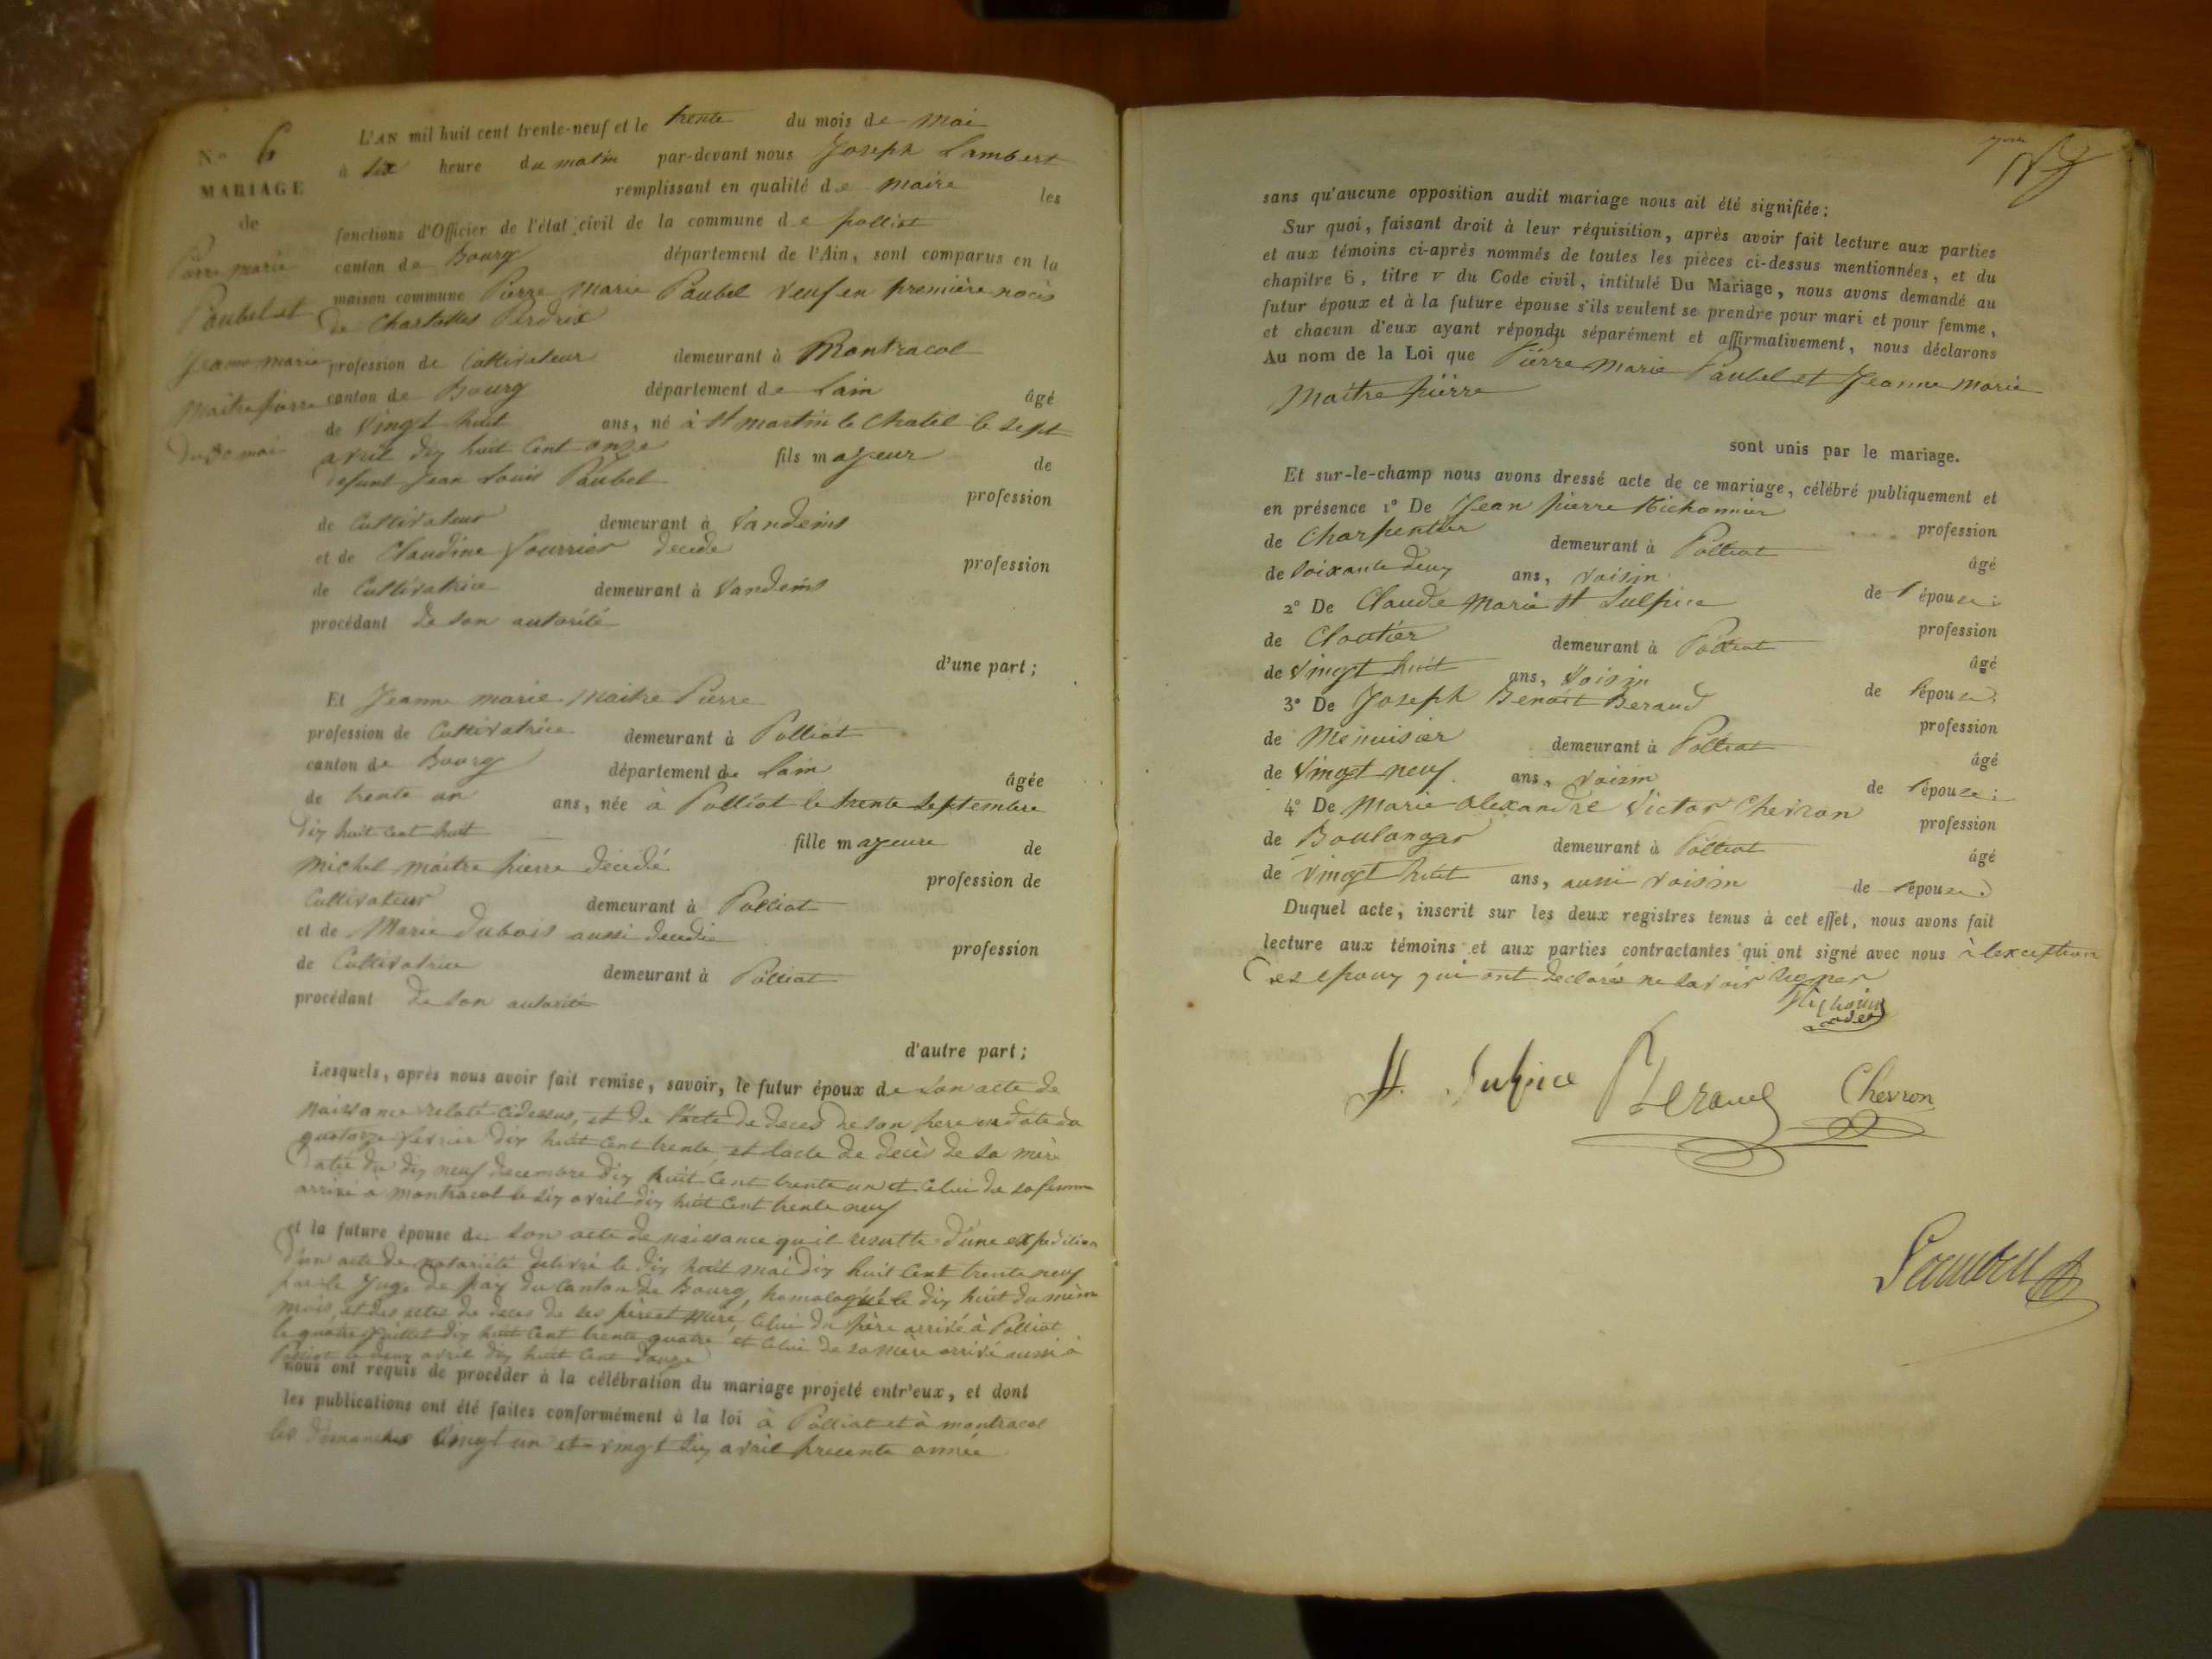 No 6
MARIAGE
de
Pierre marie
Paubel et
Jeanne marie
maitre pierre
du 30 mai
L'AN mil huit cent trente-neuf et le trente du mois de mai
à six heure du matin par-devant nous Joseph Lambert
remplissant en qualité de maire les
fonctions d'Officier de l'état civil de la commune de polliat
canton de Bourg département de l'Ain, sont comparus en la
maison commune Pierre Marie Paubel veuf en première noces
de Perdrix
profession de Cultivateur demeurant à Montracol
canton de Bourg département de Lain âgé
de vingt huit ans, né à St martin le Chatel le sept
avril dix huit cent onze fils mayeur de
defunt Jean Louis Paubel profession
de Cultivateur demeurant à Vandeins
et de Claudine decede profession
de Cultivatrice demeurant à Vandeins
procédant de son autorité
d'une part;
Et Jeanne marie Maitre Pierre
profession de Cultivatrice demeurant à Polliat
canton de Bourg département de Lain âgée
de trente un ans, née à Polliat le trente septembre
dix huit cent huit fille mayeure de
Michel maitre pierre décidé profession de
Cultivateur demeurant à Polliat
et de Marie Dubois aussi profession
de Cultivatrice demeurant à Polliat
procédant de son autorité
d'autre part;
Lesquels, après nous avoir fait remise, savoir, le futur époux de son acte de
naissance relaté cidessus, et de l'acte de deces de son pere en date du
quatorze fevrier dix huit cent trente, et lacte de decès de sa mère
Daté du dix neuf decembre dix huit cent trente un et celui de sa femme
arrivé à montracol le six avril dix huit cent trente neuf
et la future épouse de son acte de naissance qu'il resulte d'une expedition
d'un acte de notoriété delivré le dix huit mai dix huit cent trente neuf
par le Juge de paix du Canton de Bourg, homologué le dix huit du même
mois, et des actes de deces de ses père et mère, celui du père arrivé à Polliat
le quatre juillet dix huit cent trente quatre et celui de sa mère arrivé aussi à
Polliat le deux avril dix huit cent douze
nous ont requis de procéder à la célébration du mariage projeté entr'eux, et dont
les publications ont été faites conformément à la loi à Polliat et à montracol
les dimanches vingt un et vingt avril precente année
sans qu'aucune opposition audit mariage nous ait été signifiée;
Sur quoi, faisant droit à leur réquisition, après avoir fait lecture aux parties
et aux témoins ci-après nommés de toutes les pièces ci-dessus mentionnées, et du
chapitre 6, titre v du Code civil, intitulé Du Mariage, nous avons demandé au
futur époux et à la future épouse s'ils veulent se prendre pour mari et pour femme,
et chacun d'eux ayant répondu séparément et affirmativement, nous déclarons
Au nom de la Loi que Pierre Marie Paubel et Jeanne Marie
Maitre pierre
sont unis par le mariage.
Et sur-le-champ nous avons dressé acte de ce mariage, célébré publiquement et
en présence 1° De Jean pierre profession
de Charpentier demeurant à Polliat âgé
de soixante deux ans, voisin de l'épouse;
2° De Claude Marie St Sulpice profession
de Cloutier demeurant à Polliat âgé
de vingt huit ans, voisin de l'épouse;
3° De Joseph Benoit Beraud profession
de Menuisier demeurant à Polliat âgé
de vingt neuf ans, voisin de l'épouse;
4° De Marie Alexandre Victor Chevron profession
de Boulanger demeurant à Polliat âgé
de vingt huit ans, aussi voisin de l'épouse.
Duquel acte, inscrit sur les deux registres tenus à cet effet, nous avons fait
lecture aux témoins et aux parties contractantes qui ont signé avec nous à lexception
des epoux qui ont declarés ne savoir signer
St. Sulpice Beraud Chevron
Lambert